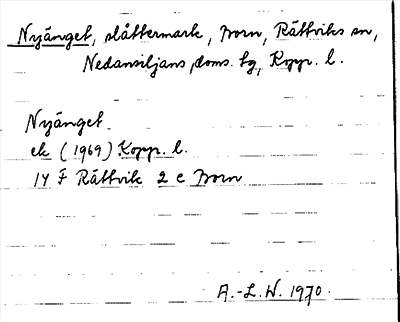 Nyänget, slåttermark, Born, Rättviks sn,
Nedansiljans doms. tg, Kopp. l.
Nyänget
ek (1969) Kopp. l.
14 F Rättvik 2 c Born
A.-L. W. 1970.